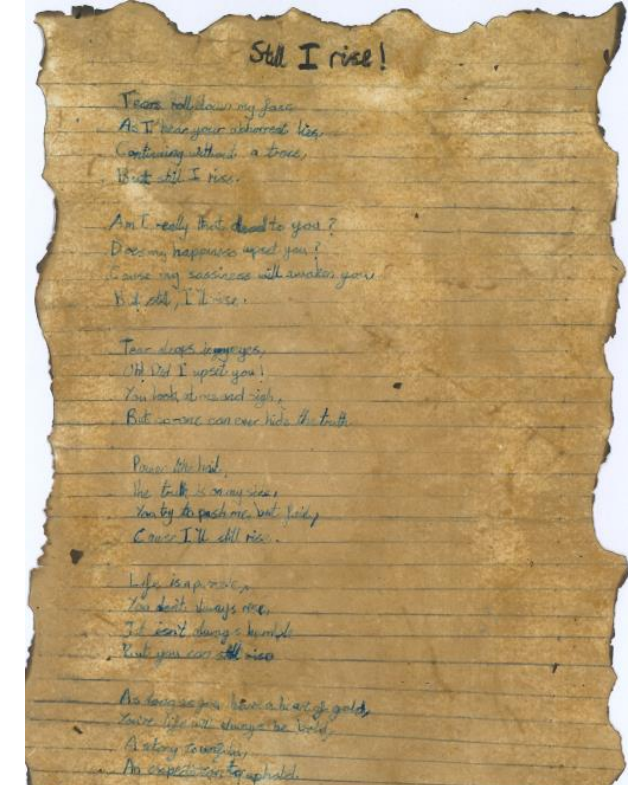 Still I rise!
Tears roll down my face
As I hear your abhorrent lies,
Continuing without a trace,
But still I rise.
Am I really that dead to you?
Does my happiness upset you?
Cause my sassiness will awaken you,
But still, I'll rise.
Tear drops in my eyes,
Oh! Did I upset you!
You look at me and sigh,
But no-one can ever hide the truth
Power like hail,
the truth is on my side,
You try to push me, but fail,
Cause I'll still rise.
Life is a
You don't always
It isn't always humble
But you can still rise
As long as you have a heart of gold,
You're life will always be bold,
A story to unfold,
An expedition to uphold.